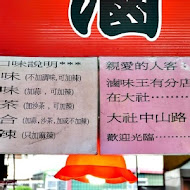 滷
口味說明***
味(不加調味,可加辣)
味(加蒜,可加辣)
茶(加沙茶,可加辣)
合(加蒜,沙茶,加或不加辣)
辣(只加麻辣)
親愛的人客:
滷味王有分店
在大社……
大社中山路
歡迎光臨………